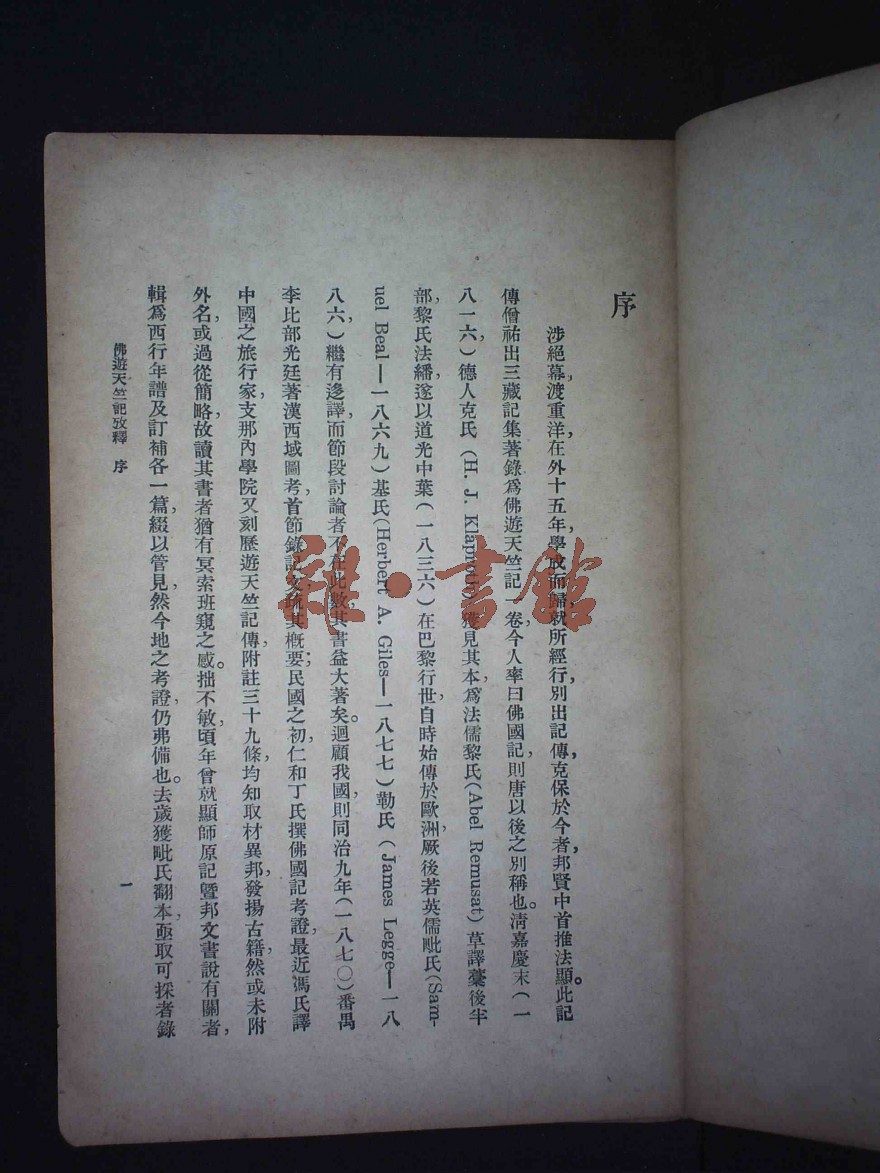 序
涉絕幕，渡重洋，在外十五年，學成而歸，就所經行，別出記傳，克保於今者，邦賢中首推法顯。此記
傳僧祐出三藏記集著錄爲佛遊天竺記一卷，今人率曰佛國記，則唐以後之別稱也。淸嘉慶末（一
八一六）德人克氏（H. J. Klaproth）獲見其本，爲法儒黎氏（Abel Remusat）草譯藁後半
部，黎氏法繙，遂以道光中葉（一八三六）在巴黎行世，自時始傳於歐洲，厥後若英儒毗氏（Sam-
uel Beal—一八六九）基氏（Herbert A. Giles—一八七七）勒氏（James Legge—一八
八六）繼有迻譯，而節段討論者不在此數，其書益大著矣。迴顧我國，則同治九年（一八七〇）番禺
李比部光廷著漢西域圖考，首節錄記文，疏其槪要；民國之初，仁和丁氏撰佛國記考證，最近馮氏譯
中國之旅行家，支那內學院又刻歷遊天竺記傳，附註三十九條，均知取材異邦，發揚古籍，然或未附
外名，或過從簡略，故讀其書者猶有冥索班窺之感。拙不敏，頃年曾就顯師原記曁邦文書說有關者，
輯爲西行年譜及訂補各一篇，綴以管見，然今地之考證，仍弗備也。去歲獲毗氏翻本，亟取可採者錄
佛遊天竺記攷釋 序
一
雜·書館